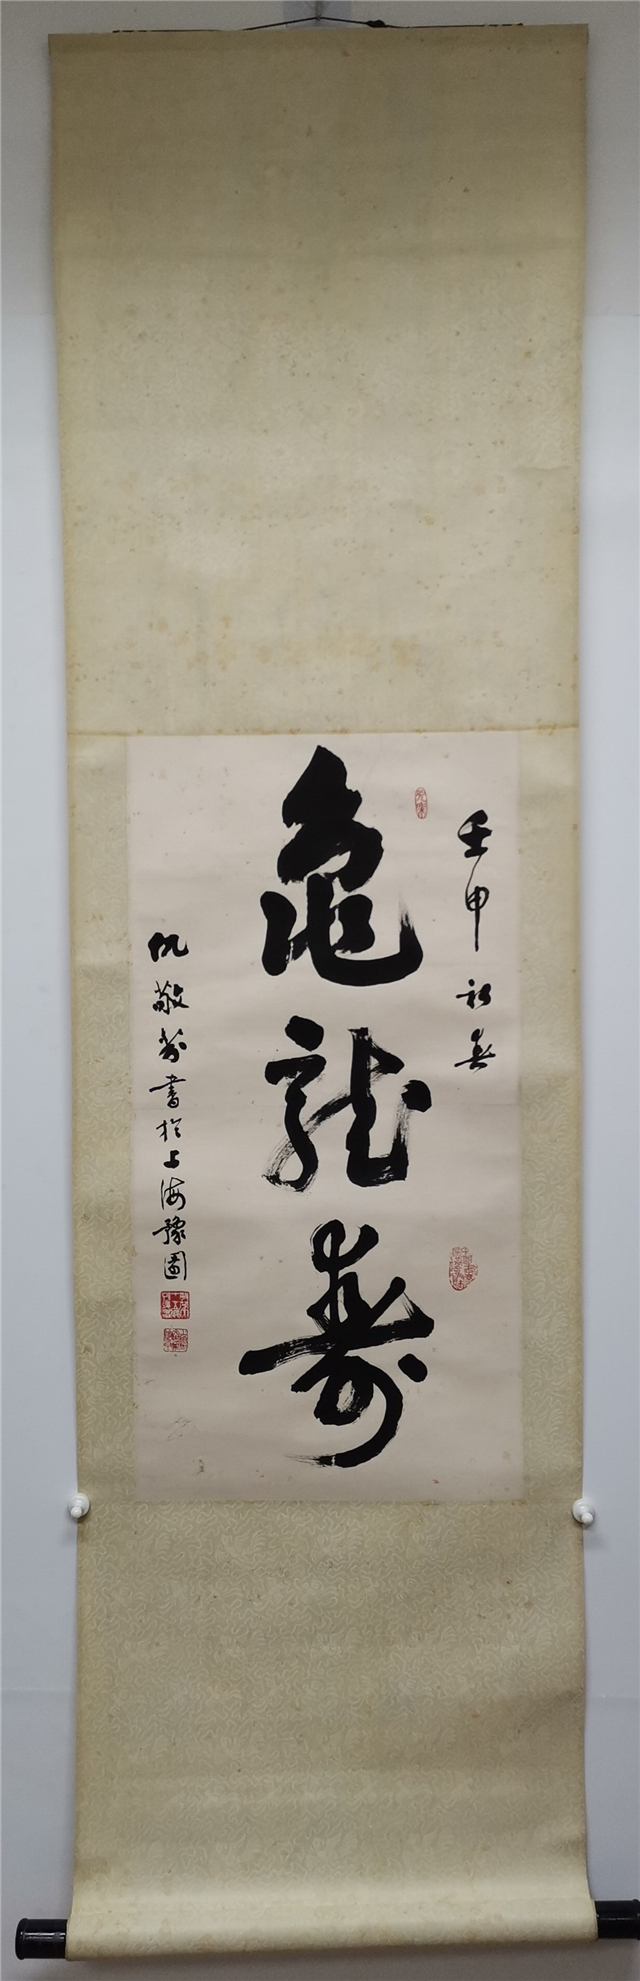 壬申初春
龜龍壽
仇敬芳書於上海豫園